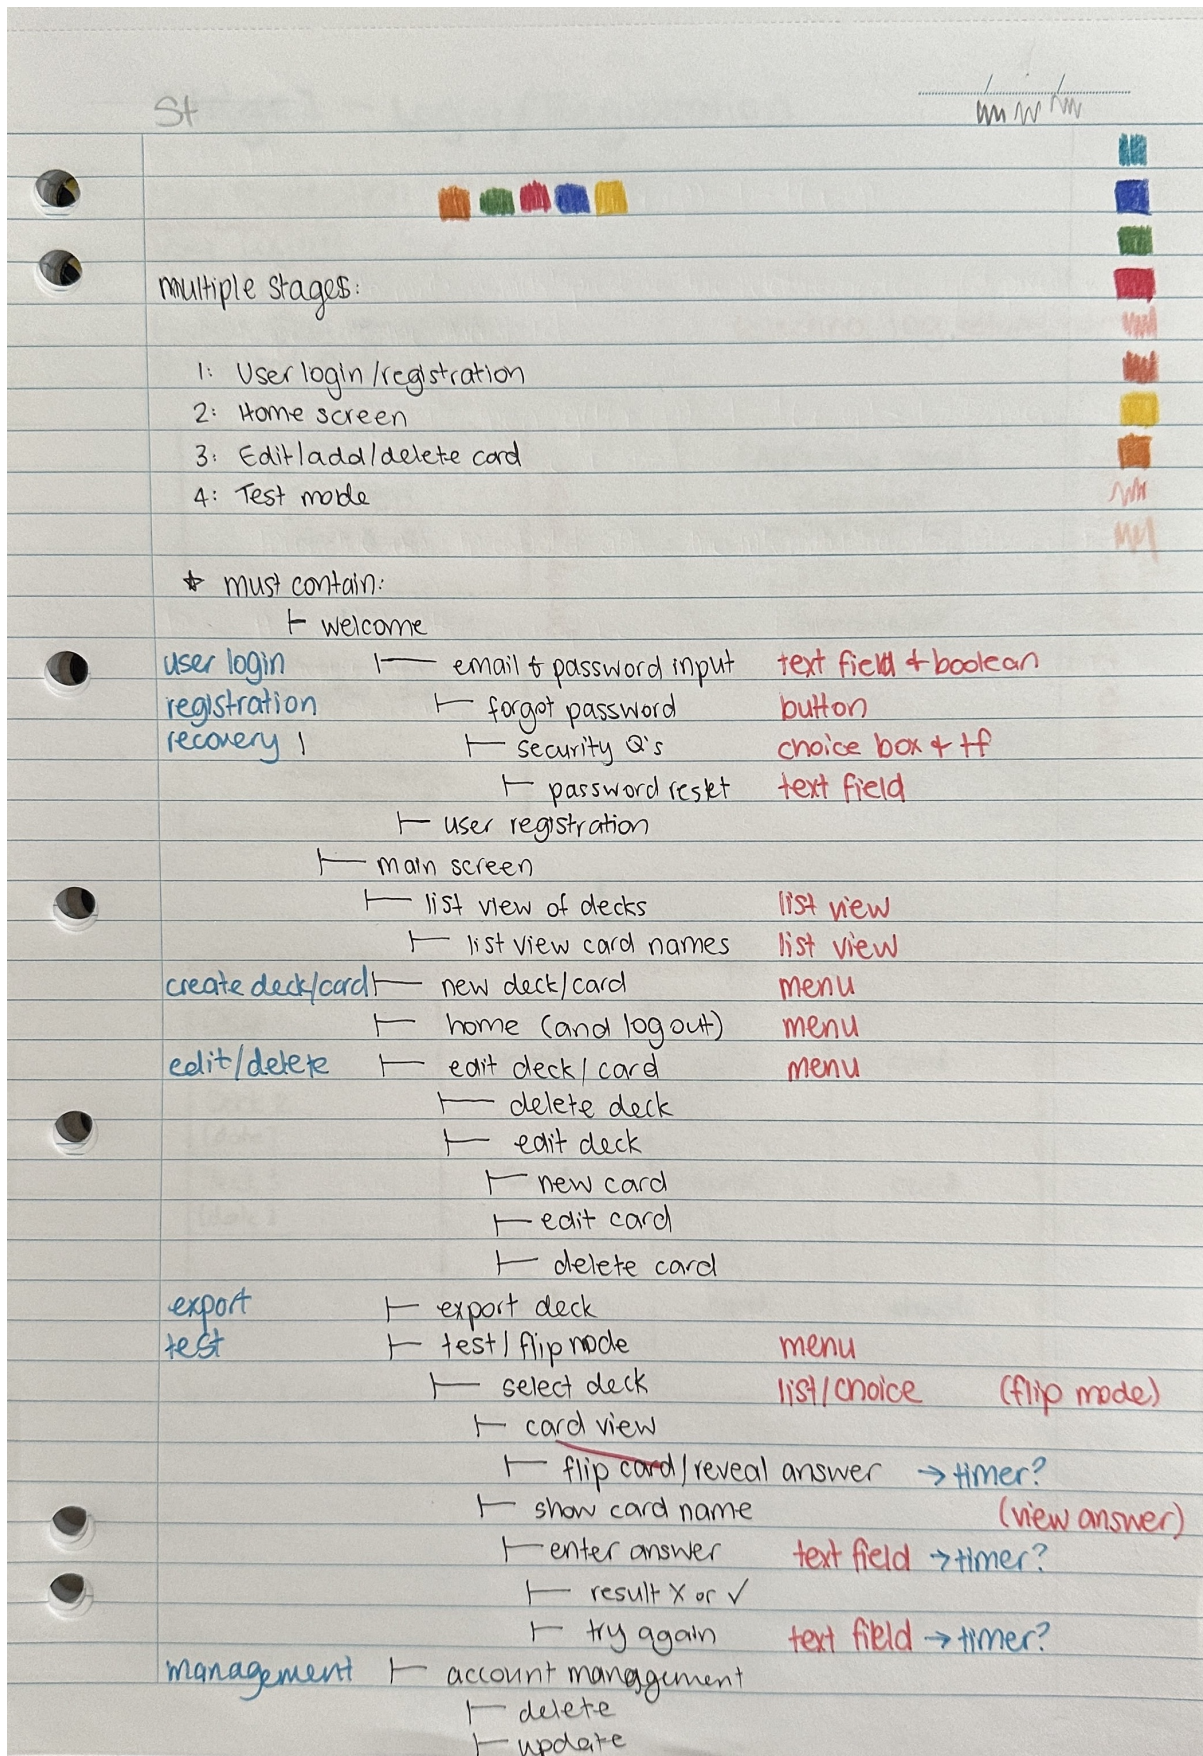 St
multiple stages:
1: User login/registration
2: Home screen
3: Edit/add/delete card
4: Test mode
* must contain:
⊢ welcome
user login ⊢ email & password input text field + boolean
registration ⊢ forgot password button
recovery ⊢ security Q's choice box + tf
⊢ password reset text field
⊢ user registration
⊢ main screen
⊢ list view of decks list view
⊢ list view card names list view
create deck/card ⊢ new deck/card menu
⊢ home (and log out) menu
edit/delete ⊢ edit deck/card menu
⊢ delete deck
⊢ edit deck
⊢ new card
⊢ edit card
⊢ delete card
export ⊢ export deck
test ⊢ test/flip mode menu
⊢ select deck list/choice (flip mode)
⊢ card view
⊢ flip card/reveal answer → timer?
⊢ show card name (view answer)
⊢ enter answer text field → timer?
⊢ result X or ✓
⊢ try again text field → timer?
management ⊢ account management
⊢ delete
⊢ update